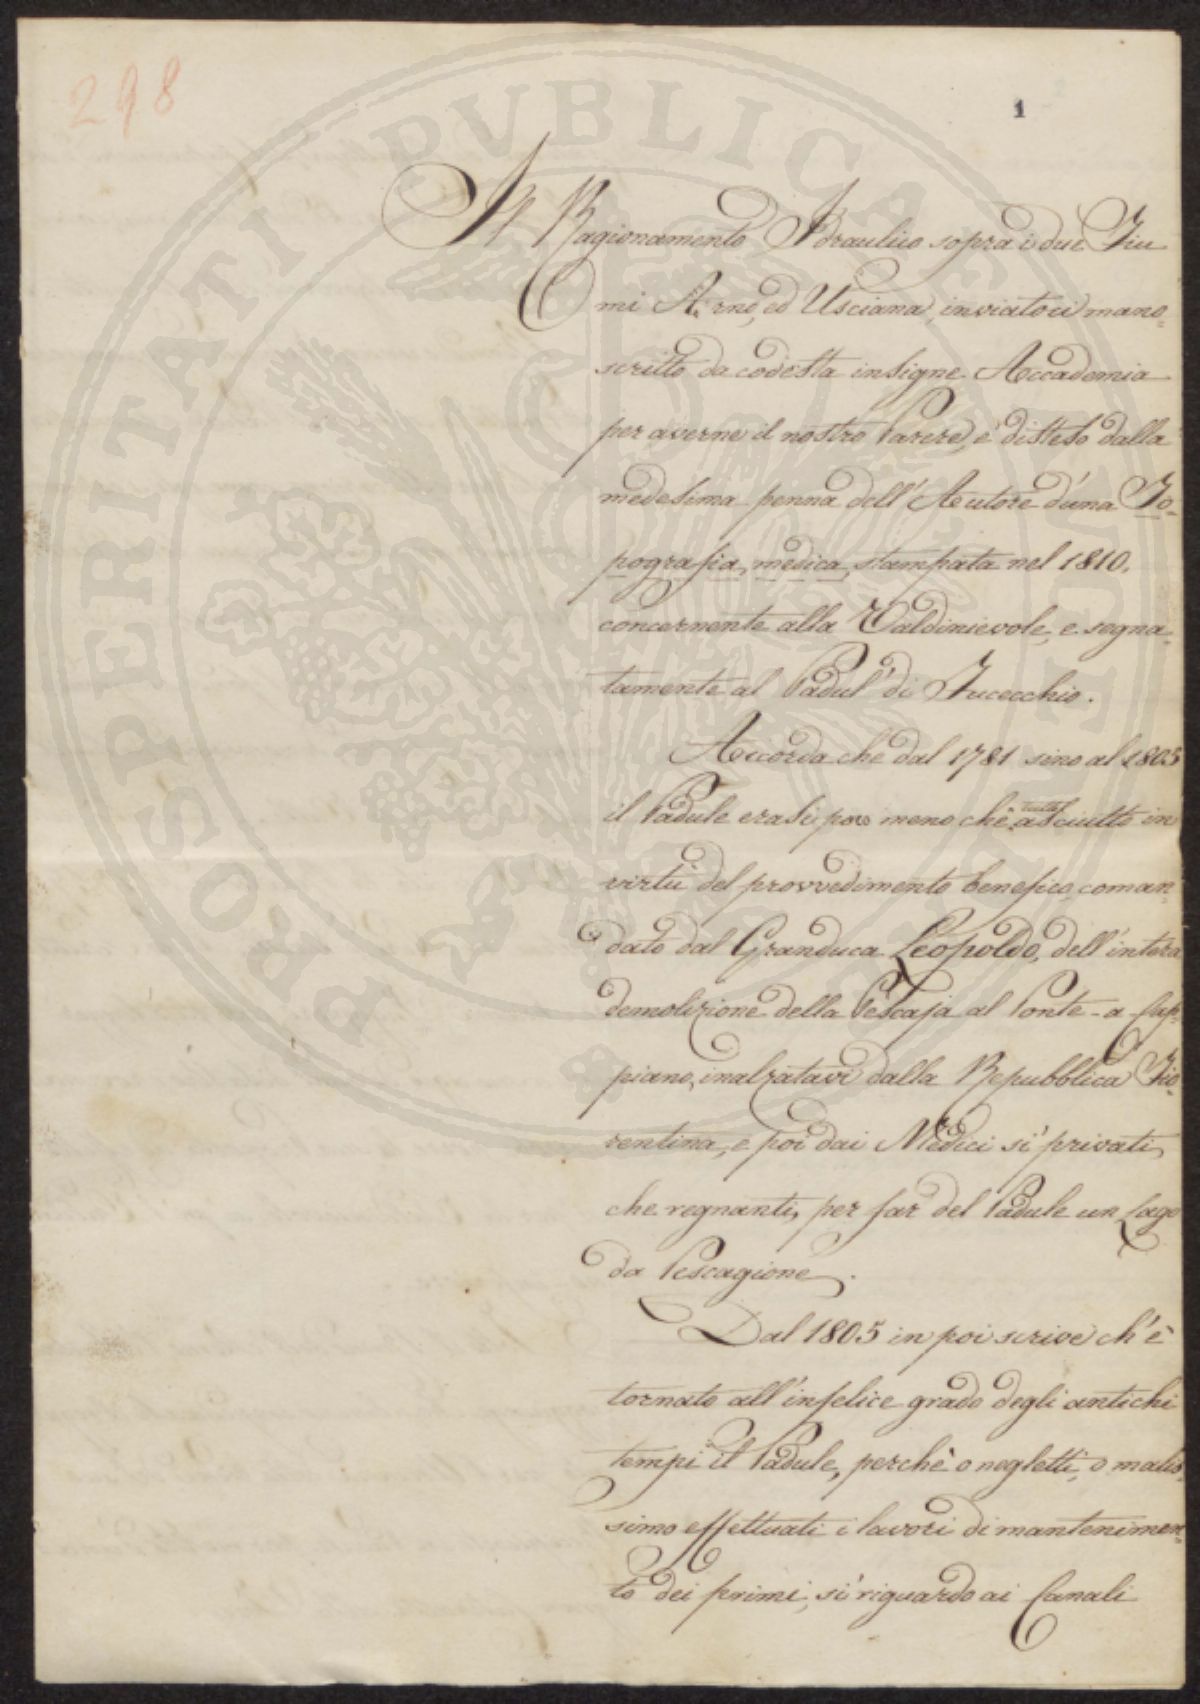 298
1
Il Ragionamento Idraulico sopra i due Fiu
mi Arno, ed Usciana, inviatoci mano-
scritto da codesta insigne Accademia
per averne il nostro Parere, è disteso dalla
medesima penna dell'Autore d'una To-
pografia medica, stampata nel 1810.
concernente alla Valdinievole, e segna-
tamente al Padul' di Fucecchio.
Accorda che dal 1781 sino al 1805
il Padule erasi poco meno chè tutto
asciutto in
virtù del provvedimento benefico, coman-
dato dal Granduca Leopoldo, dell'intera
demolizione della Pescaja al Ponte-a-Cap-
piano, inalzatavi dalla Repubblica Fio-
rentina, e poi dai Medici sì privati,
che regnanti, per far del Padule un Lago
da Pescagione.
Dal 1805 in poi scrive ch'è
tornato all'infelice grado degli antichi
tempi il Padule, perchè o negletti, o malis-
simo effettuati i lavori di mantenimen-
to dei primi, sì riguardo ai Canali
PROSPERITATI PVBLICAE AVGENDAE